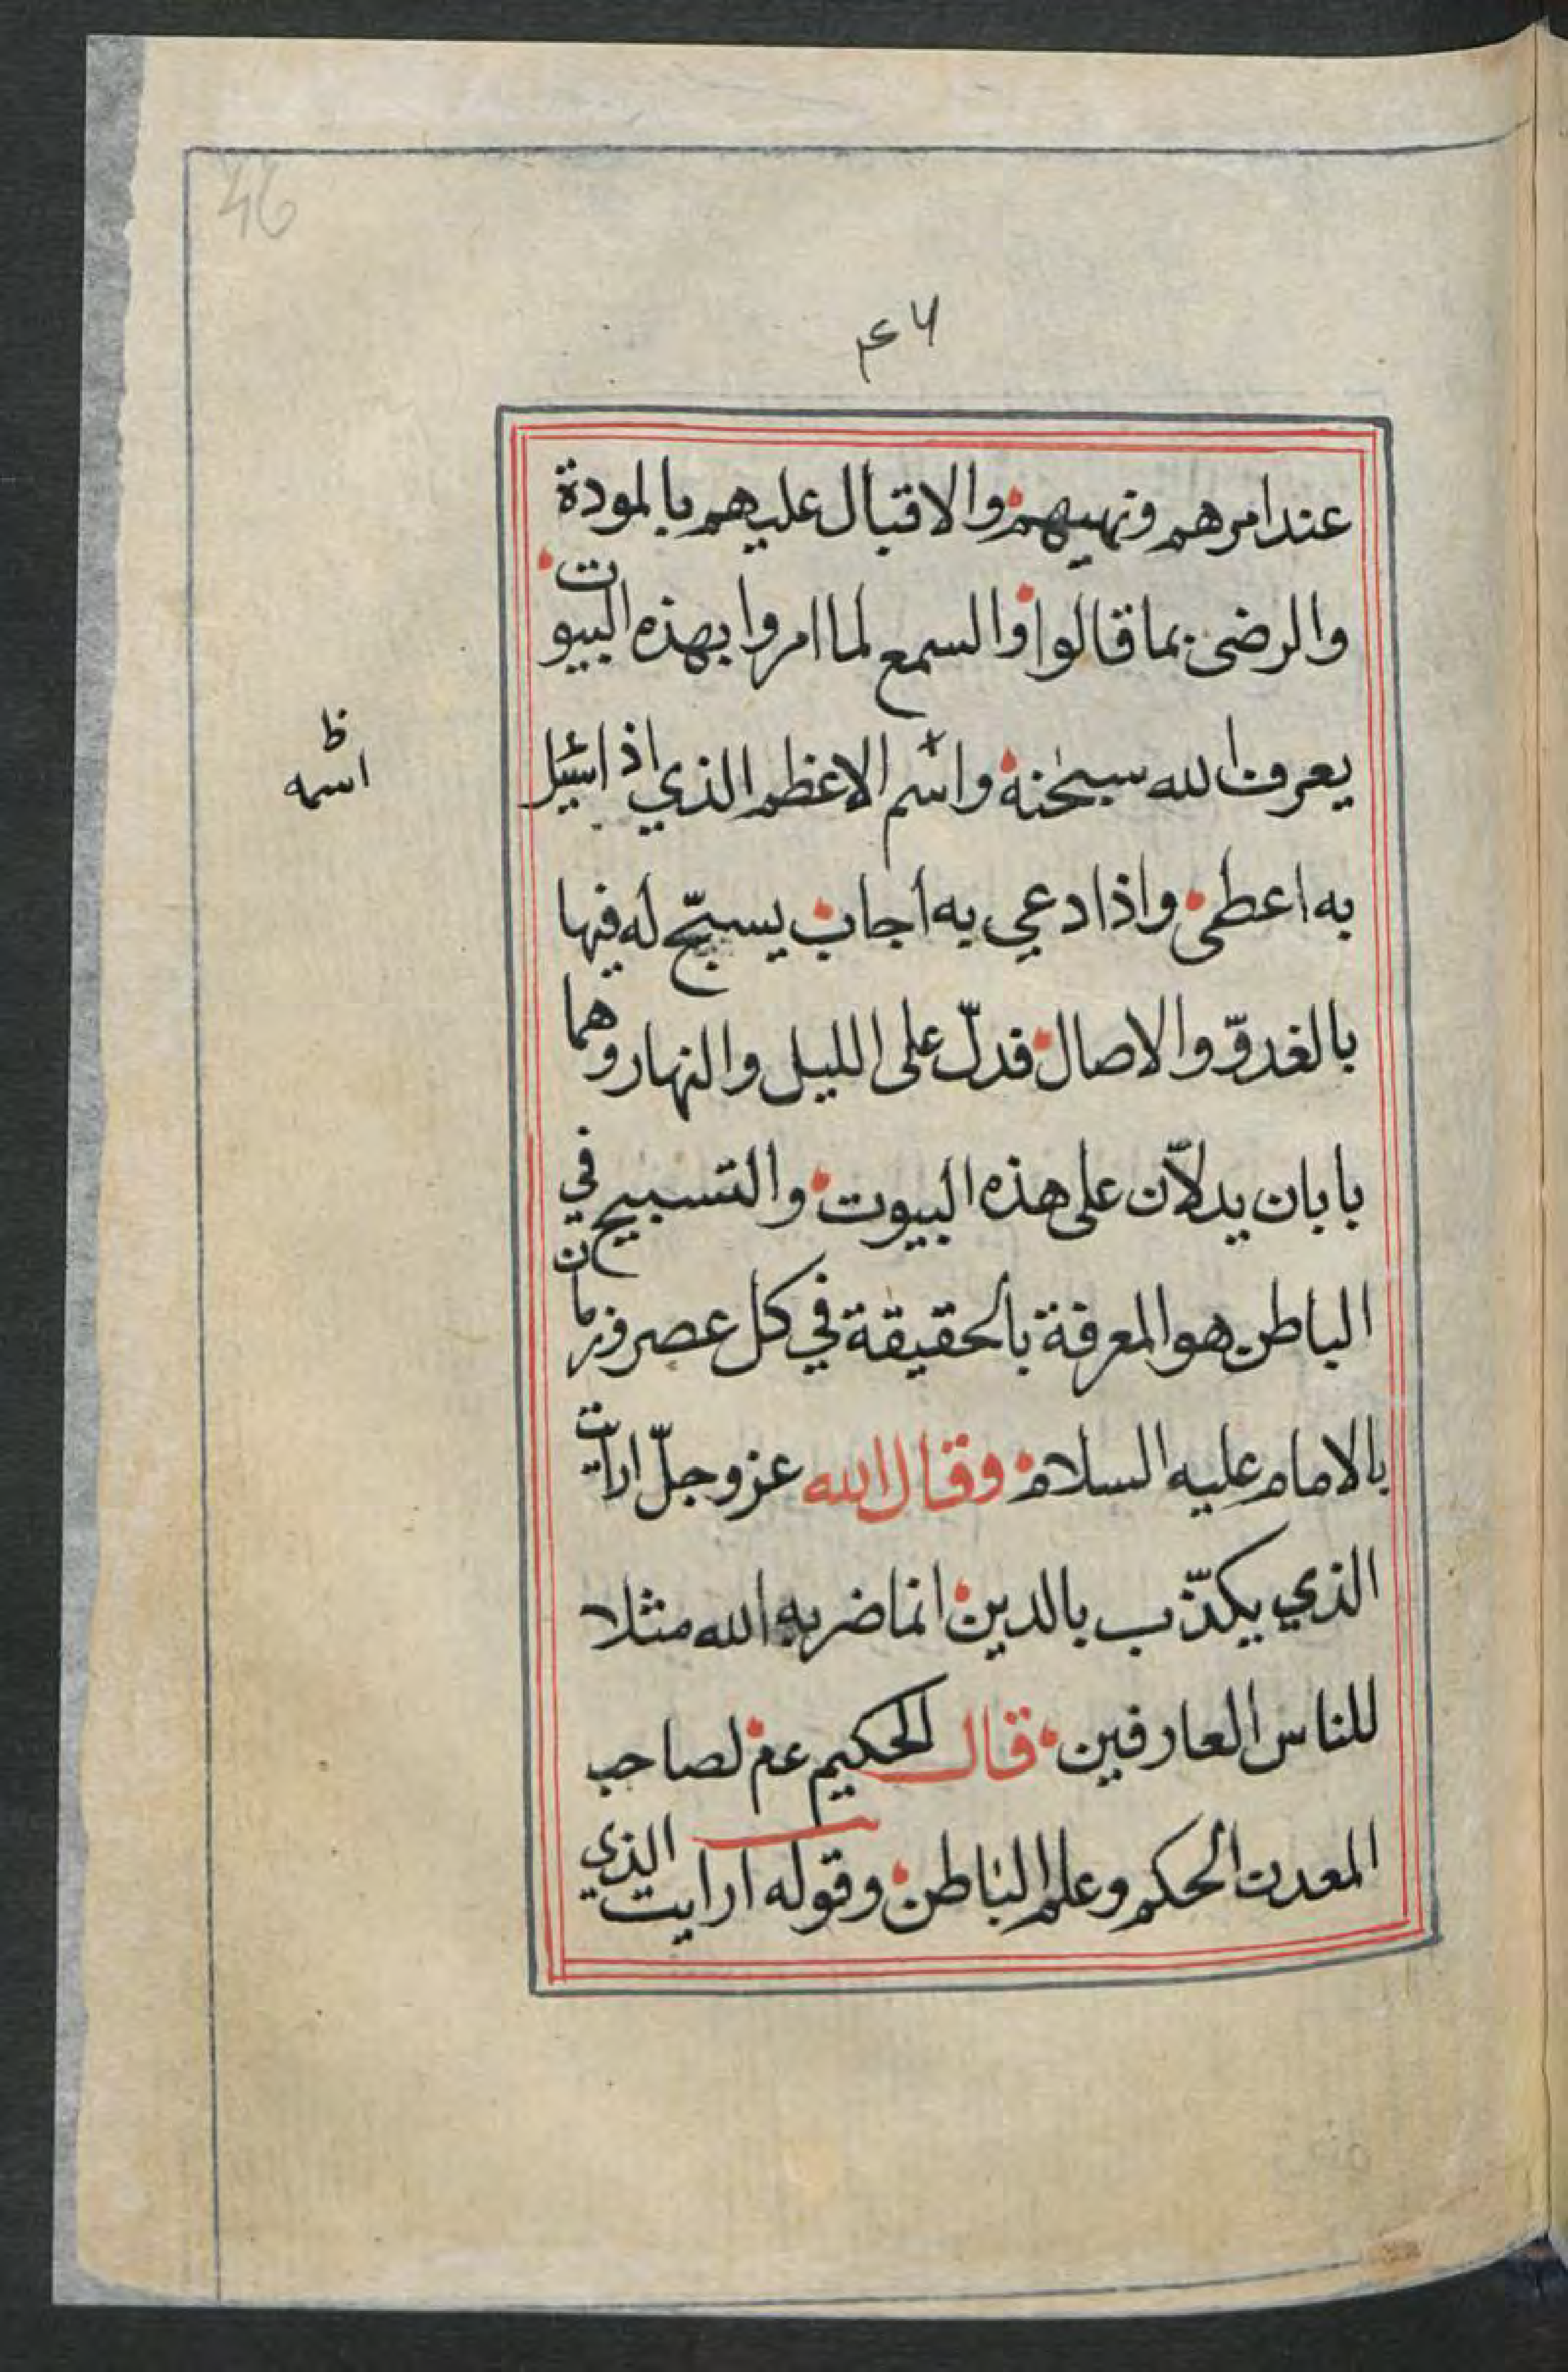 46
۴۶
عند امرهم ونهيهم والاقبال عليهم بالمودة
والرضى بما قالوا والسمع لما امروا بهذه البيوت
يعرف الله سبحٰنه واسم الاعظم الذي اذا سئل
اسمه
به اعطى واذا دعي به اجاب يسبّح له فيها
بالغدوّ والاصال فدلّ على الليل والنهار وهما
بابان يدلّان على هذه البيوت والتسبيح في
الباطن هو المعرفة بالحقيقة في كل عصر وزمان
بالامام عليه السلام وقال الله عز وجلّ ارايت
الذي يكذّب بالدين انما ضربه الله مثلا
للناس العارفين قال الحكيم عم لصاحب
المعدن الحكم وعلم الباطن وقوله ارايت الذي